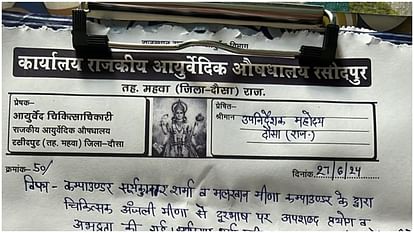 राजस्थान
विभाग
कार्यालय राजकीय आयुर्वेदिक औषधालय रसीदपुर
तह. महवा (जिला-दौसा) राज.
प्रेषक-
आयुर्वेद चिकित्साधिकारी
राजकीय आयुर्वेदिक औषधालय
रसीदपुर (तह. महवा) जिला-दौसा
प्रेषित-
श्रीमान उपनिदेशक महोदय
दौसा (राज.)
क्रमांक-50/
दिनांक 27/6/24
विषय- कम्पाउण्डर शर्मा व मलखान मीणा कम्पाउण्डर के द्वारा
चिकित्सक अंजली मीणा से दूरभाष पर अपशब्द प्रयोग व
अभद्रता की